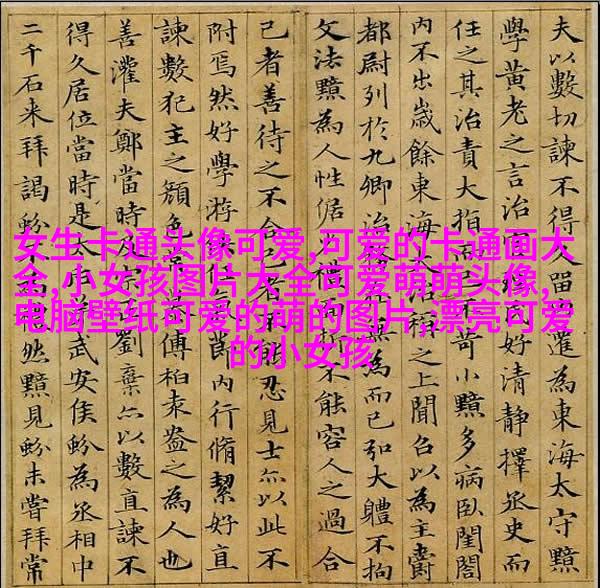 女生卡通头像可爱,可爱的卡通画大
全,小女孩图片大全可爱萌萌头像,
电脑壁纸可爱的萌的图片,漂亮可爱
的小女孩
夫以數切諫不得久留遷為東海太守黯
學黃老之言治官民好清靜擇丞史而
任之其治責大指而已不苛小黯多病臥閨閤
內不出歲餘東海大治稱之上聞召以為主爵
都尉列於九卿治無為而已弘大體不拘
文法黯為人性倨禮面折不能容人之過合
己者善待之不合己者不能忍見士亦以此不
附焉然好學游俠任氣節內行脩絜好直
諫數犯主之顏色常慕傅柏袁盎之為人也
善灌夫鄭當時及宗正劉棄亦以數直諫不
得久居位當時是太弟武安侯蚡為丞相中
二千石来拜謁蚡不然黯見蚡未嘗拜常